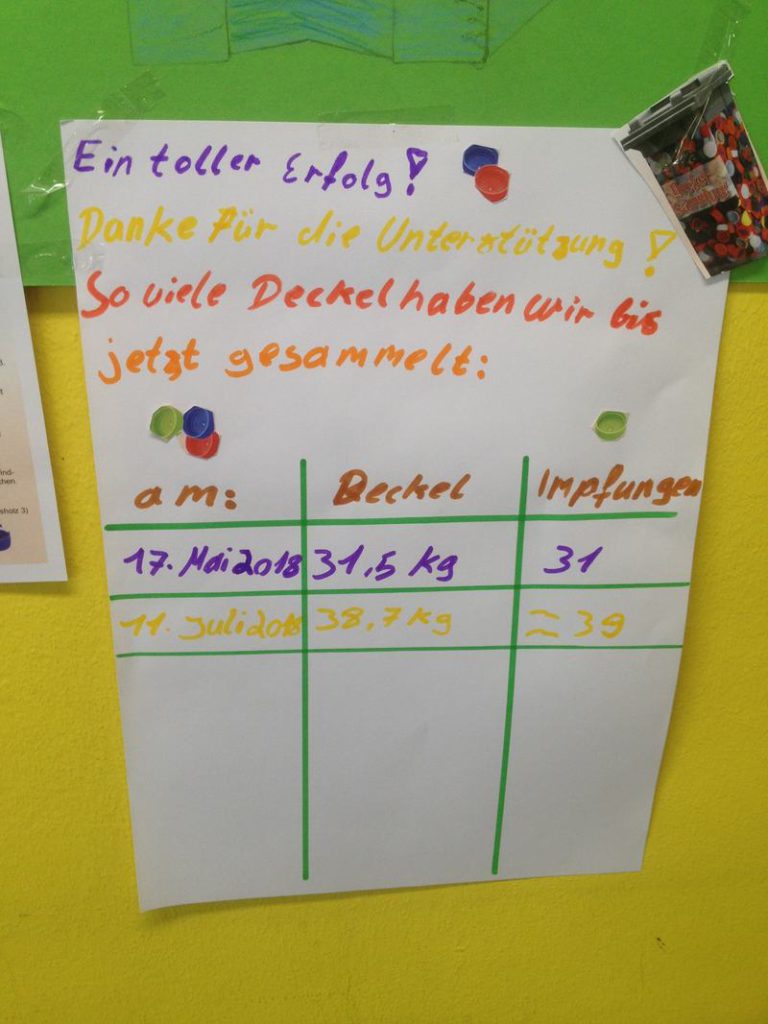 Ein toller Erfolg!
Danke für die Unterstützung!
So viele Deckel haben wir bis
jetzt gesammelt:
am: Deckel Impfungen
17. Mai 2018 31,5 kg 31
11. Juli 2018 38,7 kg ≈ 39
sholz 3)